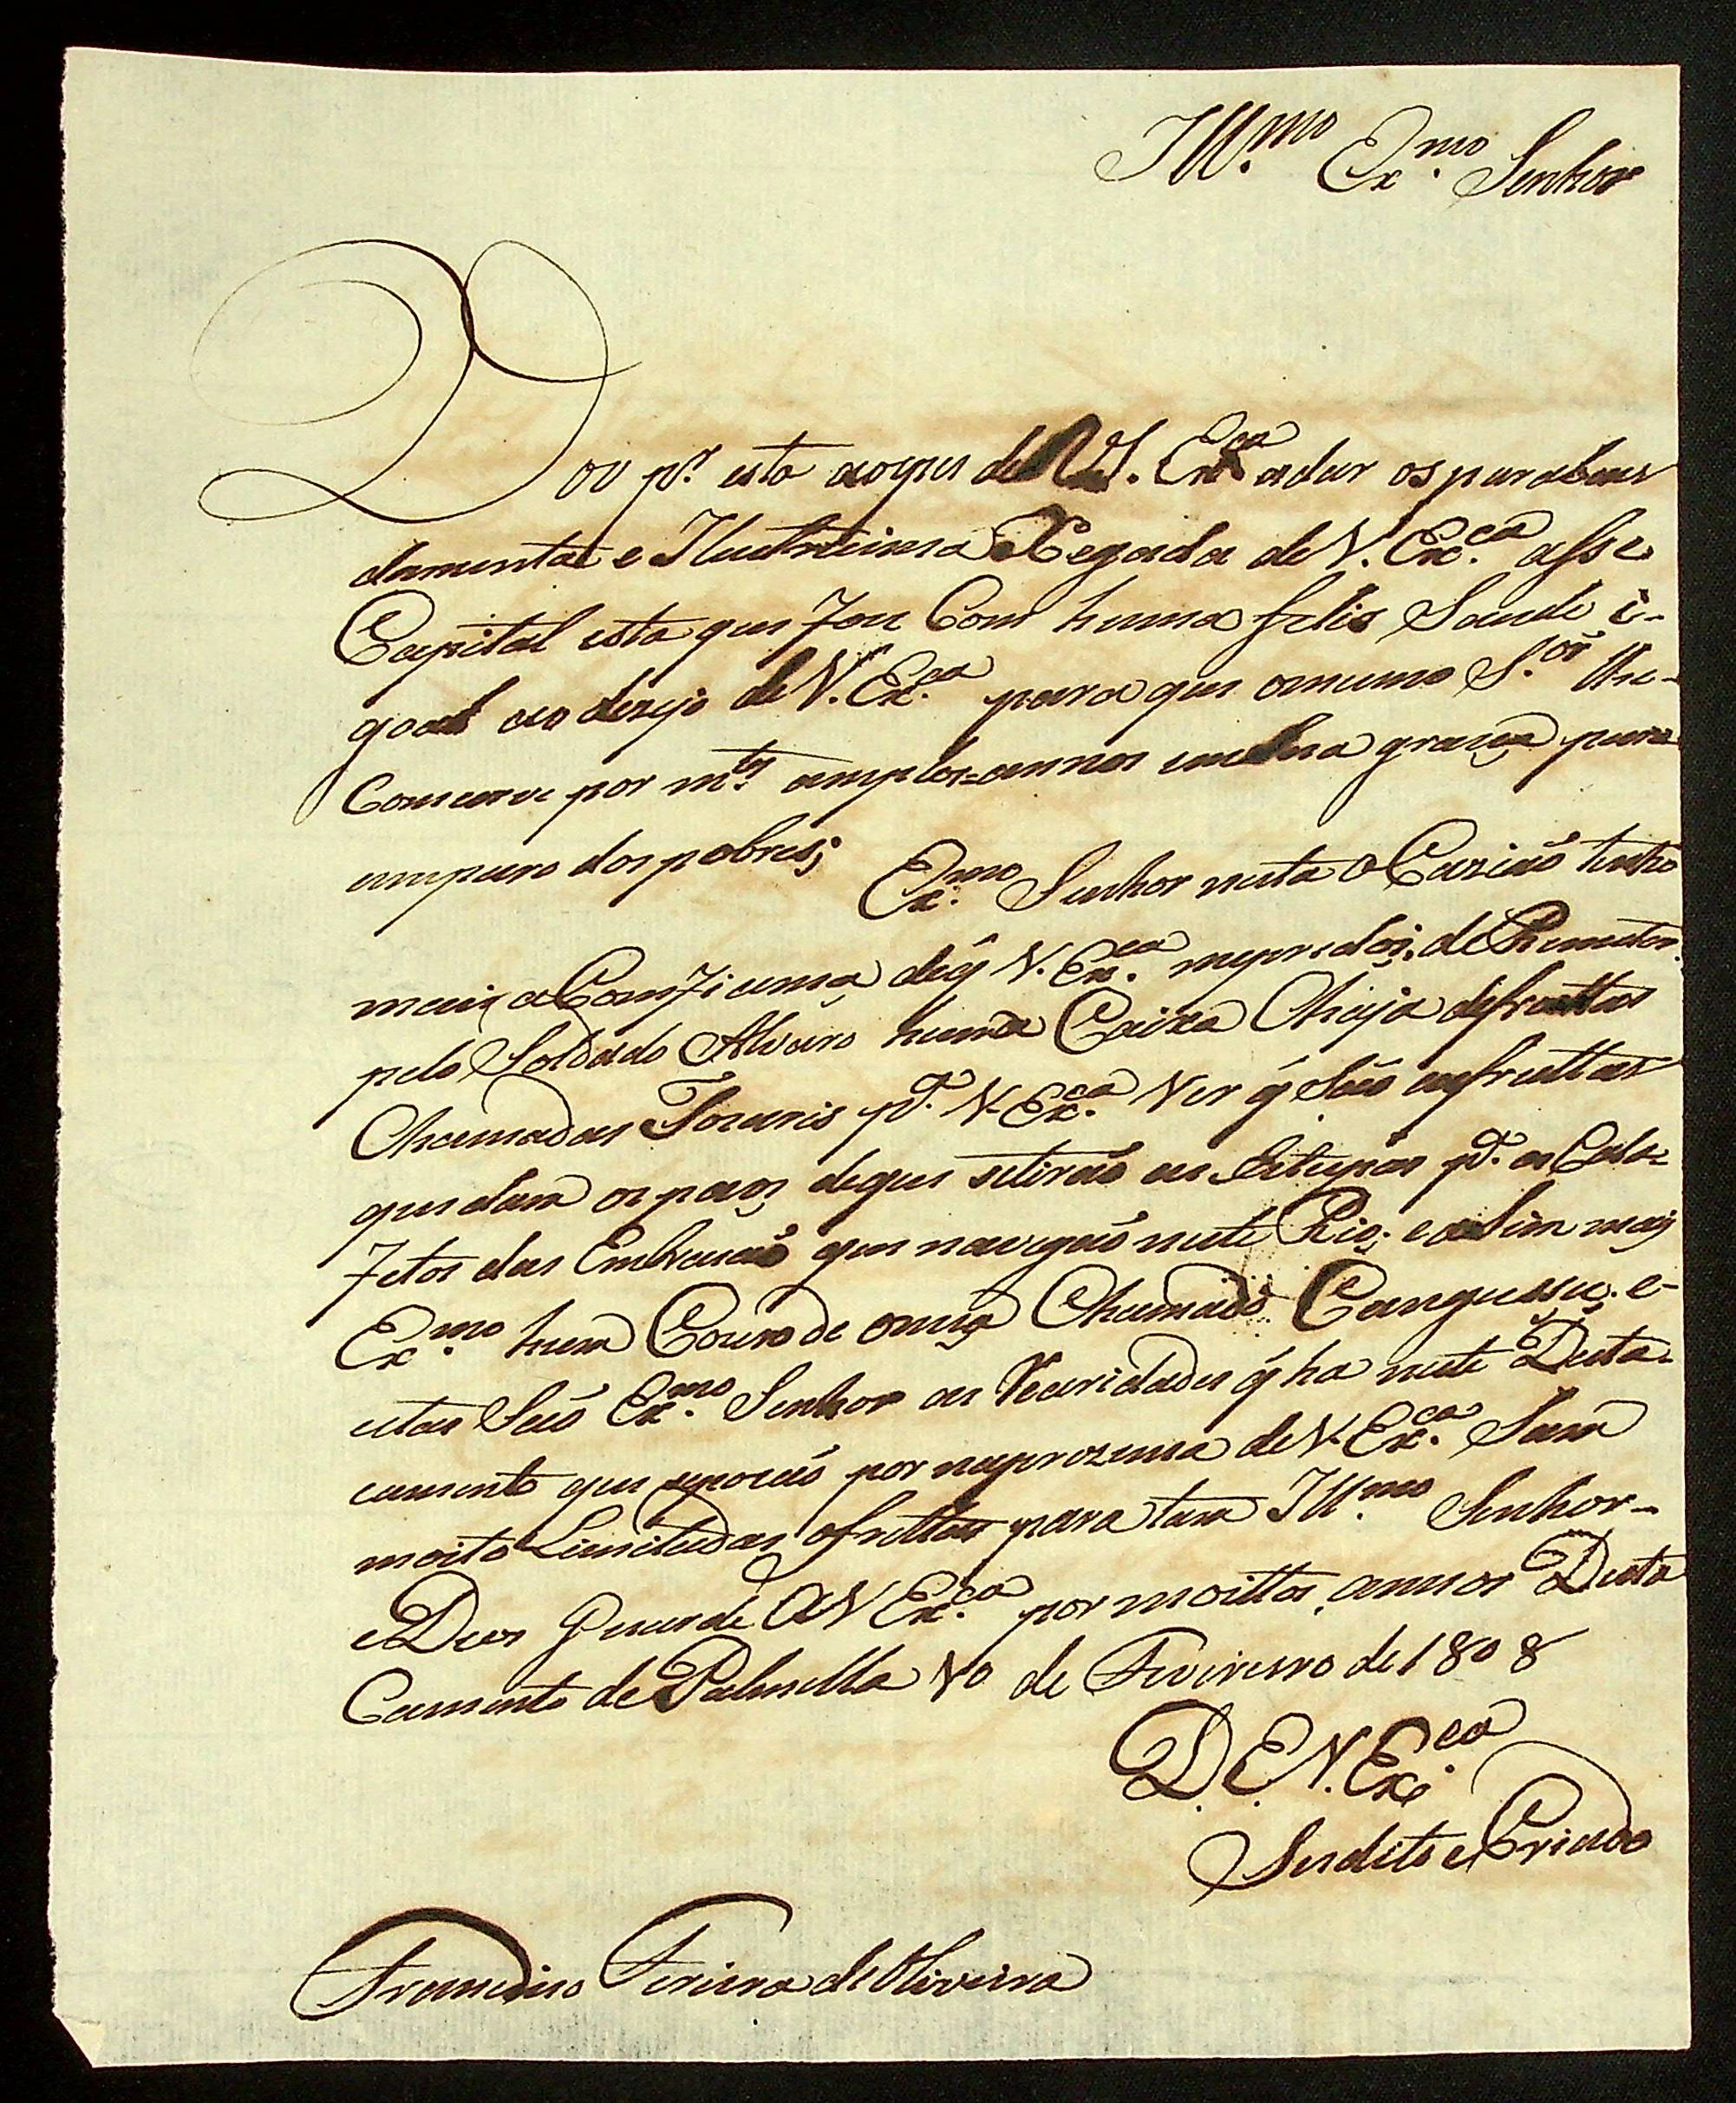 Ill.mo Ex.mo Senhor
Vou p.r esta aospes de V. Ex.ca adar osparabens
damenta e Ilustreisima Xegada de V. Ex.ca asse
Capital esta que foce Com huma felis Saude i-
goal ao dezejo de V. Ex.ca para que omesmo S.or lhe
Comcerve por m.tos amplos=annos emSua graça para
amparo dospobres; Ex.mo Senhor nesta OCaziaõ tenho
maiz aComfiamça deq̃ V. Ex.ca mepredoi, de Remeter
pelo Soldado Alvaro huma Caixa Cheja defruttas
Chamadas Toraris p.a V. Ex.ca Ver q̃ Saõ asfruttas
que dam ospaos deque setiraõ as Estupas p.a os Cala-
fetos das Embracaõ que navegaõ neste Rio; easim maiz
Ex.mo hum Couro de omça Chamado Cangussu; e-
estas Saõ Ex.mo Senhor as Recaridades q̃ ha neste Desta-
camento que seposaõ por naprozensa de V. Ex.ca Sam
moito Limitadas ofruttas para tam Ill.mo Senhor-
eDeos Guarde AV Ex.ca por moittos annos Desta
Camento de Palmella 10 de Fevireiro de 1808
D. E. V. Ex.ca
Sudito eCriado
Francisco Ferira deOliveira